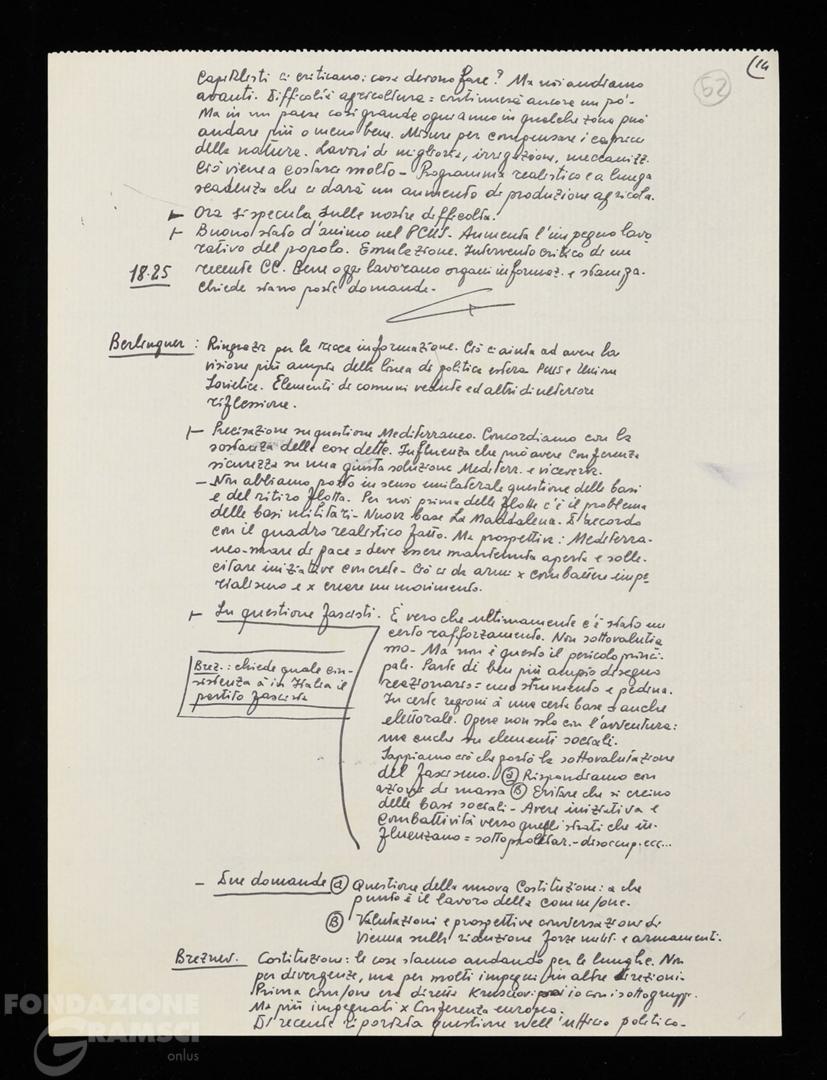 14
52
Capitalisti ci criticano: cose devono fare? Ma noi andiamo
avanti. Difficoltà agricoltura = continuerà ancora un pò.
Ma in un paese così grande ogni anno in qualche zona può
andare più o meno bene. Misure per compensare i capricci
delle natura. Lavori di migliorie, irrigazione, meccanizz.
Ciò viene a costare molto - Programma realistico e a lunga
scadenza che ci darà un aumento di produzione agricola.
Ora si specula sulle nostre difficoltà.
Buono stato d'animo nel PCUS. Aumenta l'impegno lavo
rativo del popolo. Emulazione. Intervento critico di un
18.25
recente CC. Bene oggi lavorano organi informaz. e stampa.
Chiede siano poste domande.
Berlinguer: Ringrazia per la ricca informazione. Ciò ci aiuta ad avere la
visione più ampia della linea di politica estera PCUS e Unione
Sovietica. Elementi di comuni vedute ed altri di ulteriore
riflessione.
Precisazione su questione Mediterraneo. Concordiamo con la
sostanza delle cose dette. Influenza che può avere conferenza
sicurezza su una giusta soluzione Mediterr. e viceversa.
- Non abbiamo posto in senso unilaterale questione delle basi
e del ritiro flotta. Per noi prima delle flotte c'è il problema
delle basi militari - Nuova base La Maddalena. D'accordo
con il quadro realistico fatto. Ma prospettiva: Mediterra-
neo-mare di pace = deve essere mantenuta aperta e solle-
citare iniziative concrete - Ciò ci da armi x combattere impe
rialismo e x creare un movimento.
In questione fascisti. È vero che ultimamente c'è stato un
certo rafforzamento. Non sottovalutia
mo - Ma non è questo il pericolo princi-
pale. Parte di ben più ampio disegno
reazionario = uno strumento e pedina.
In certe regioni à una certa base anche
elettorale. Opera non solo con l'avventura:
ma anche su elementi sociali.
Sappiamo ciò che portò la sottovalutazione
del fascismo. (a) Rispondiamo con
azione di massa (B) Evitare che si creino
delle basi sociali - Avere iniziativa e
combattività verso quegli strati che in-
fluenzano = sottoproletar. - disoccup. ecc...
Brez.: chiede quale con-
sistenza à in Italia il
partito fascista
- Due domande (a) Questione della nuova Costituzione: a che
punto è il lavoro della comm/one.
(B) Valutazioni e prospettive conversazioni di
Vienna sulla riduzione forze milit. e armamenti.
Breznev. Costituzione: le cose stanno andando per le lunghe. Non
per divergenze, ma per molti impegni in altre direzioni.
Prima com/one era diretta Krusciov poi io con i sottogruppi.
Ma più impegnati x Conferenza europea.
Di recente riportata questione nell'ufficio politico -
FONDAZIONE
GRAMSCI
onlus